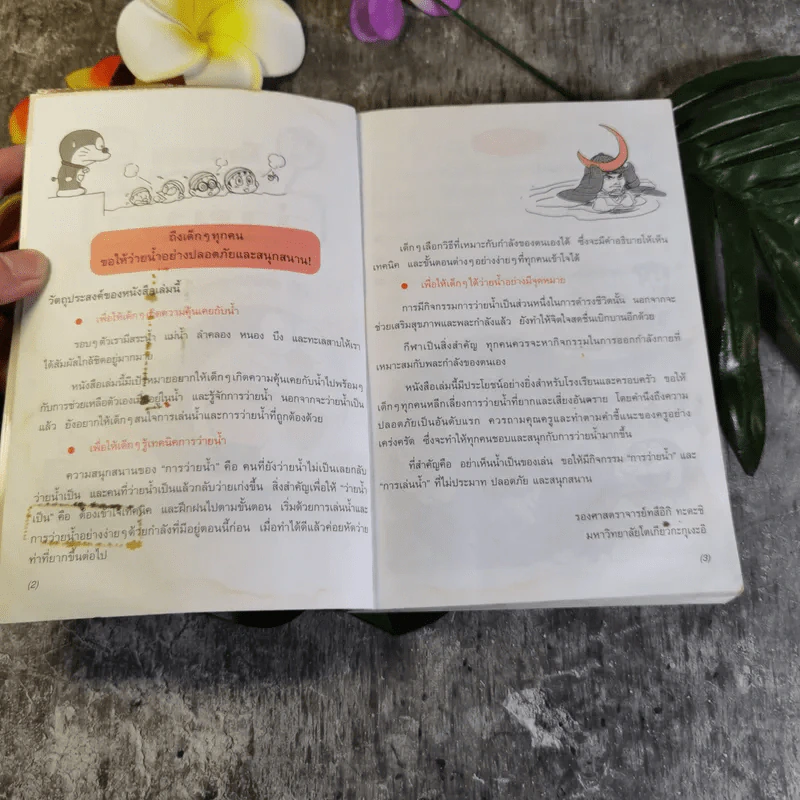 ถึงเด็กๆ ทุกคน
ขอให้ว่ายน้ำอย่างปลอดภัยและสนุกสนาน!
วัตถุประสงค์ของหนังสือเล่มนี้
● เพื่อให้เด็กๆ เกิดความคุ้นเคยกับน้ำ
รอบๆ ตัวเรามีสระน้ำ แม่น้ำ ลำคลอง หนอง บึง และทะเลสาบให้เรา
ได้สัมผัสใกล้ชิดอยู่มากมาย
หนังสือเล่มนี้มีเป้าหมายอยากให้เด็กๆ เกิดความคุ้นเคยกับน้ำไปพร้อมๆ
กับการช่วยเหลือตัวเองเมื่ออยู่ในน้ำ และรู้จักการว่ายน้ำ นอกจากจะว่ายน้ำเป็น
แล้ว ยังอยากให้เด็กๆ สนใจการเล่นน้ำและการว่ายน้ำที่ถูกต้องด้วย
● เพื่อให้เด็กๆ รู้เทคนิคการว่ายน้ำ
ความสนุกสนานของ "การว่ายน้ำ" คือ คนที่ยังว่ายน้ำไม่เป็นเลยกลับ
ว่ายน้ำเป็น และคนที่ว่ายน้ำเป็นแล้วกลับว่ายเก่งขึ้น สิ่งสำคัญเพื่อให้ "ว่ายน้ำ
เป็น" คือ ต้องเข้าใจเทคนิค และฝึกฝนไปตามขั้นตอน เริ่มด้วยการเล่นน้ำและ
การว่ายน้ำอย่างง่ายๆ ด้วยกำลังที่มีอยู่ตอนนี้ก่อน เมื่อทำได้ดีแล้วค่อยหัดว่าย
ท่าที่ยากขึ้นต่อไป
(2)
เด็กๆ เลือกวิธีที่เหมาะกับกำลังของตนเองได้ ซึ่งจะมีคำอธิบายให้เห็น
เทคนิค และขั้นตอนต่างๆ อย่างง่ายๆ ที่ทุกคนเข้าใจได้
● เพื่อให้เด็กๆ ได้ว่ายน้ำอย่างมีจุดหมาย
การมีกิจกรรมการว่ายน้ำเป็นส่วนหนึ่งในการดำรงชีวิตนั้น นอกจากจะ
ช่วยเสริมสุขภาพและพละกำลังแล้ว ยังทำให้จิตใจสดชื่นเบิกบานอีกด้วย
กีฬาเป็นสิ่งสำคัญ ทุกคนควรจะหากิจกรรมในการออกกำลังกายที่
เหมาะสมกับพละกำลังของตนเอง
หนังสือเล่มนี้มีประโยชน์อย่างยิ่งสำหรับโรงเรียนและครอบครัว ขอให้
เด็กๆ ทุกคนหลีกเลี่ยงการว่ายน้ำที่ยากและเสี่ยงอันตราย โดยคำนึงถึงความ
ปลอดภัยเป็นอันดับแรก ควรถามคุณครูและทำตามคำชี้แนะของครูอย่าง
เคร่งครัด ซึ่งจะทำให้ทุกคนชอบและสนุกกับการว่ายน้ำมากขึ้น
ที่สำคัญคือ อย่าเห็นน้ำเป็นของเล่น ขอให้มีกิจกรรม "การว่ายน้ำ" และ
"การเล่นน้ำ" ที่ไม่ประมาท ปลอดภัย และสนุกสนาน
รองศาสตราจารย์ทสึอิกิ ทะคะชิ
มหาวิทยาลัยโตเกียวกะกุเงะอิ
(3)